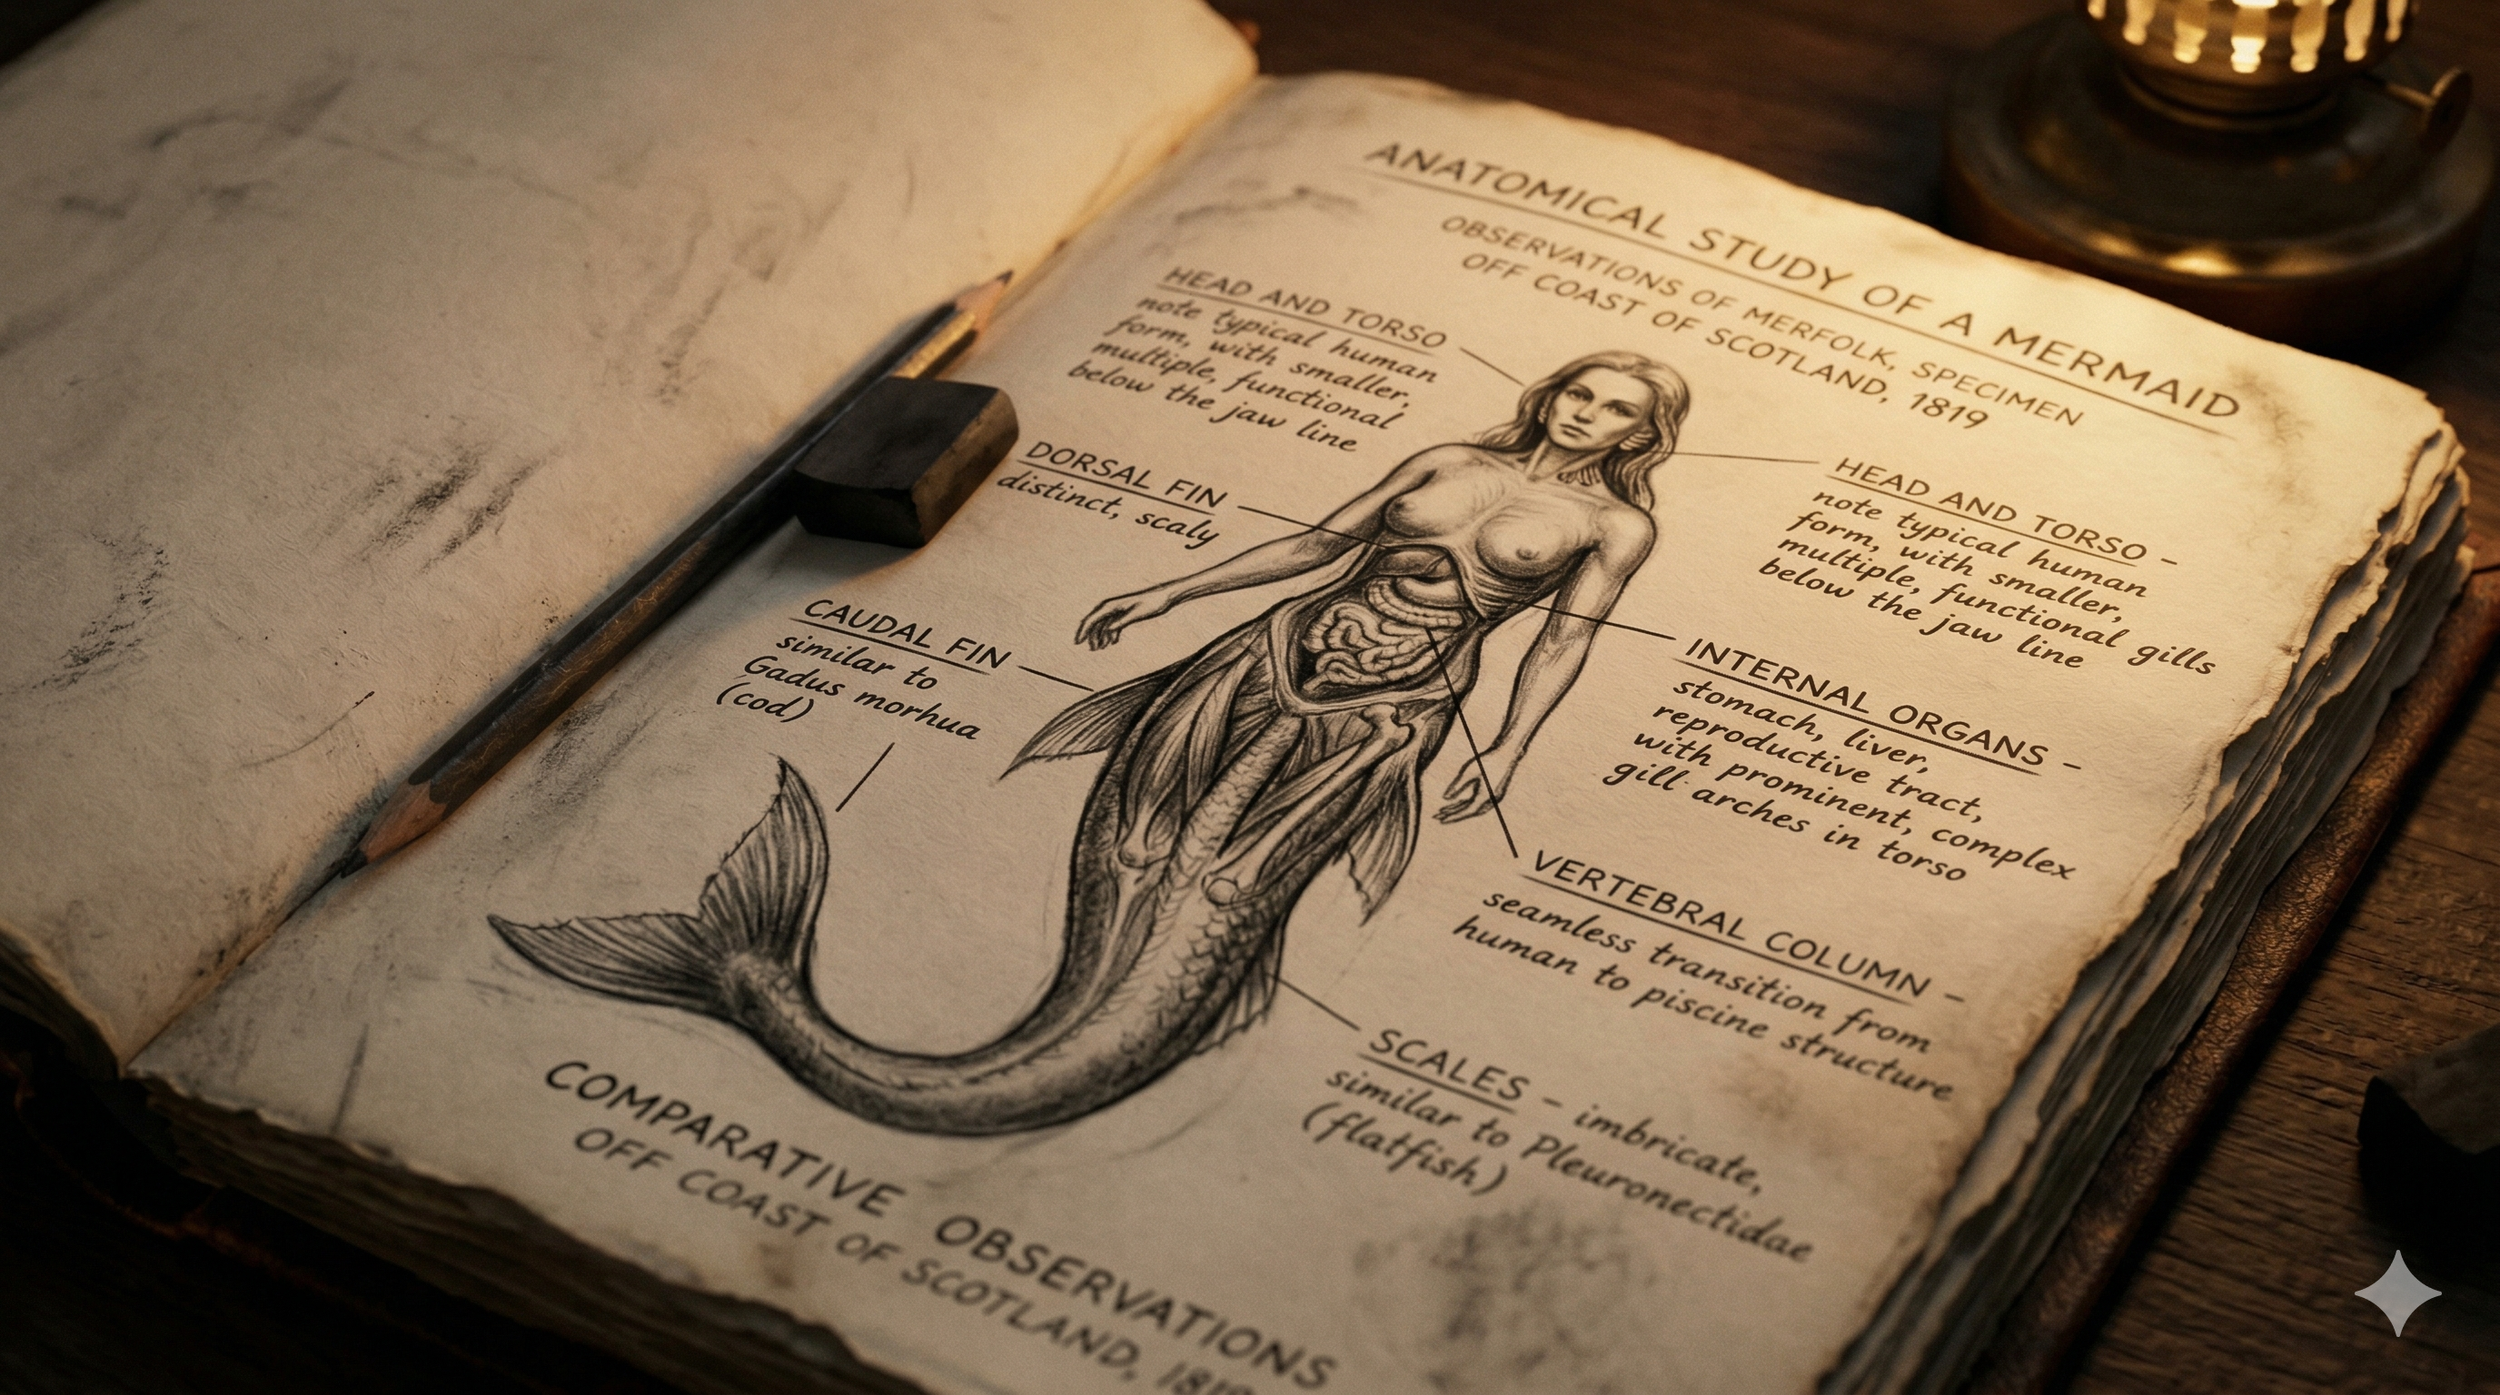 ANATOMICAL STUDY OF A MERMAID
OBSERVATIONS OF MERFOLK, SPECIMEN
OFF COAST OF SCOTLAND, 1819
HEAD AND TORSO
note typical human
form, with smaller,
multiple, functional
below the jaw line
DORSAL FIN
distinct, scaly
CAUDAL FIN
similar to
Gadus morhua
(cod)
HEAD AND TORSO –
note typical human
form, with smaller,
multiple, functional gills
below the jaw line
INTERNAL ORGANS –
stomach, liver,
reproductive tract,
with prominent, complex
gill arches in torso
VERTEBRAL COLUMN –
seamless transition from
human to piscine structure
SCALES – imbricate,
similar to Pleuronectidae
(flatfish)
COMPARATIVE OBSERVATIONS
OFF COAST OF SCOTLAND, 1819